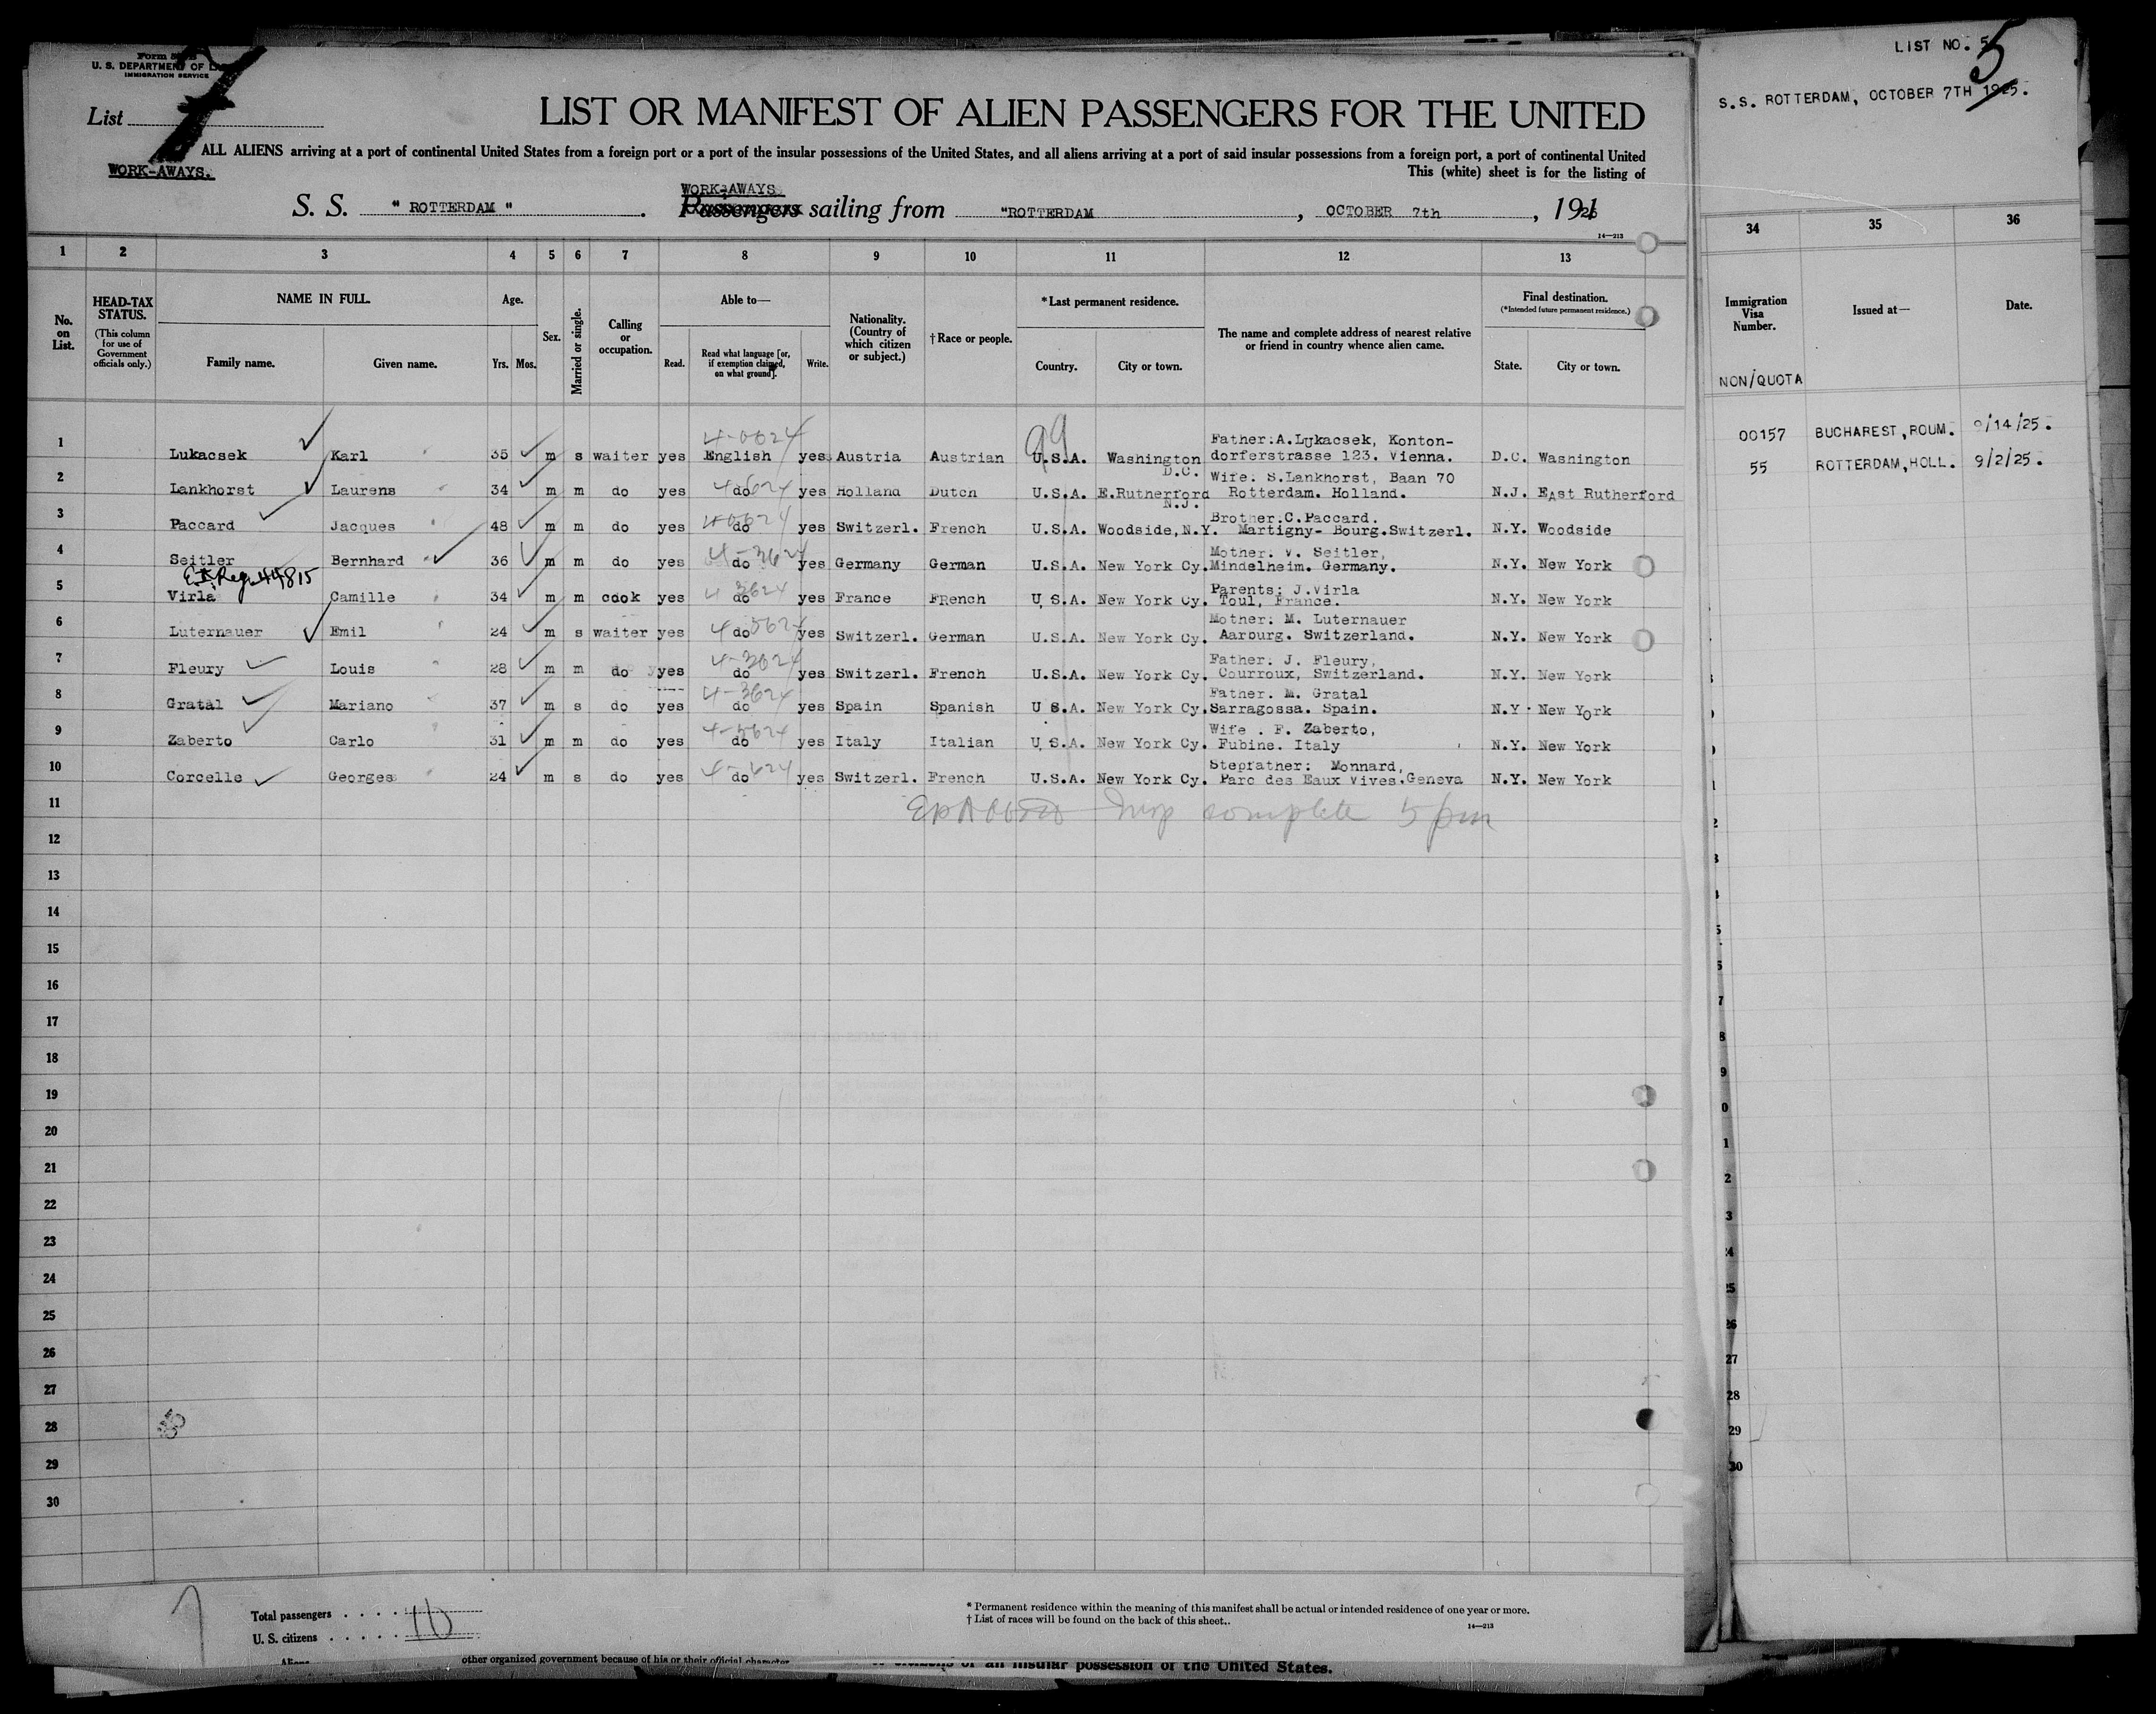 Form
U. S. DEPARTMENT OF
IMMIGRATION SERVICE
List
WORK-AWAYS.
LIST OR MANIFEST OF ALIEN PASSENGERS FOR THE UNITED
ALL ALIENS arriving at a port of continental United States from a foreign port or a port of the insular possessions of the United States, and all aliens arriving at a port of said insular possessions from a foreign port, a port of continental United
This (white) sheet is for the listing of
WORK-AWAYS
S. S. "ROTTERDAM". Passengers sailing from "ROTTERDAM, OCTOBER 7th, 19
14—213
1 2 3 4 5 6 7 8 9 10 11 12 13
No. on List.
HEAD-TAX STATUS. (This column for use of Government officials only.)
NAME IN FULL.
Family name. Given name.
Age.
Yrs. Mos.
Sex.
Married or single.
Calling or occupation.
Able to—
Read. Read what language [or, if exemption claimed, on what ground]. Write.
Nationality. (Country of which citizen or subject.)
†Race or people.
*Last permanent residence.
Country. City or town.
The name and complete address of nearest relative or friend in country whence alien came.
Final destination.
(*Intended future permanent residence.)
State. City or town.
1 Lukacsek Karl 35 m s waiter yes English yes Austria Austrian U.S.A. Washington D.C. Father:A.Lukacsek, Konton-dorferstrasse 123. Vienna. D.C. Washington
2 Lankhorst Laurens 34 m m do yes do yes Holland Dutch U.S.A. E.Rutherford N.J. Wife: S.Lankhorst, Baan 70 Rotterdam. Holland. N.J. EAst Rutherford
3 Paccard Jacques 48 m m do yes do yes Switzerl. French U.S.A. Woodside,N.Y. Brother:C.Paccard. Martigny- Bourg.Switzerl. N.Y. Woodside
4 Seitler Bernhard 36 m m do yes do yes Germany German U.S.A. New York Cy. Mother: V. Seitler, Mindelheim. Germany. N.Y. New York
EI Reg. 44815
5 Virla Camille 34 m m cook yes do yes France FRench U.S.A. New York Cy. Parents: J.Virla Toul, France. N.Y. New York
6 Luternauer Emil 24 m s waiter yes do yes Switzerl. German U.S.A. New York Cy. Mother: M. Luternauer Aarourg. Switzerland. N.Y. New York
7 Fleury Louis 28 m m do yes do yes Switzerl. French U.S.A. New York Cy. Father: J. Fleury, Courroux, Switzerland. N.Y. New York
8 Gratal Mariano 37 m s do yes do yes Spain Spanish U S.A. New York Cy. Father. M. Gratal Sarragossa. Spain. N.Y. New York
9 Zaberto Carlo 31 m m do yes do yes Italy Italian U.S.A. New York Cy. Wife . F. Zaberto, Fubine. Italy N.Y. New York
10 Corcelle Georges 24 m s do yes do yes Switzerl. French U.S.A. New York Cy. Stepfather: Monnard, Parc des Eaux Vives.Geneva N.Y. New York
11 Insp complete 5 pm
12
13
14
15
16
17
18
19
20
21
22
23
24
25
26
27
28
29
30
Total passengers . . . . 10
U. S. citizens . . . . .
Aliens
* Permanent residence within the meaning of this manifest shall be actual or intended residence of one year or more.
† List of races will be found on the back of this sheet..
14—213
other organized government because of his or their official character
or citizens of an insular possession of the United States.
LIST NO. 5
S.S. ROTTERDAM, OCTOBER 7TH 1925.
34 35 36
Immigration Visa Number.
Issued at—
Date.
NON/QUOTA
00157 BUCHAREST,ROUM. 9/14/25.
55 ROTTERDAM,HOLL. 9/2/25.
27
28
29
30